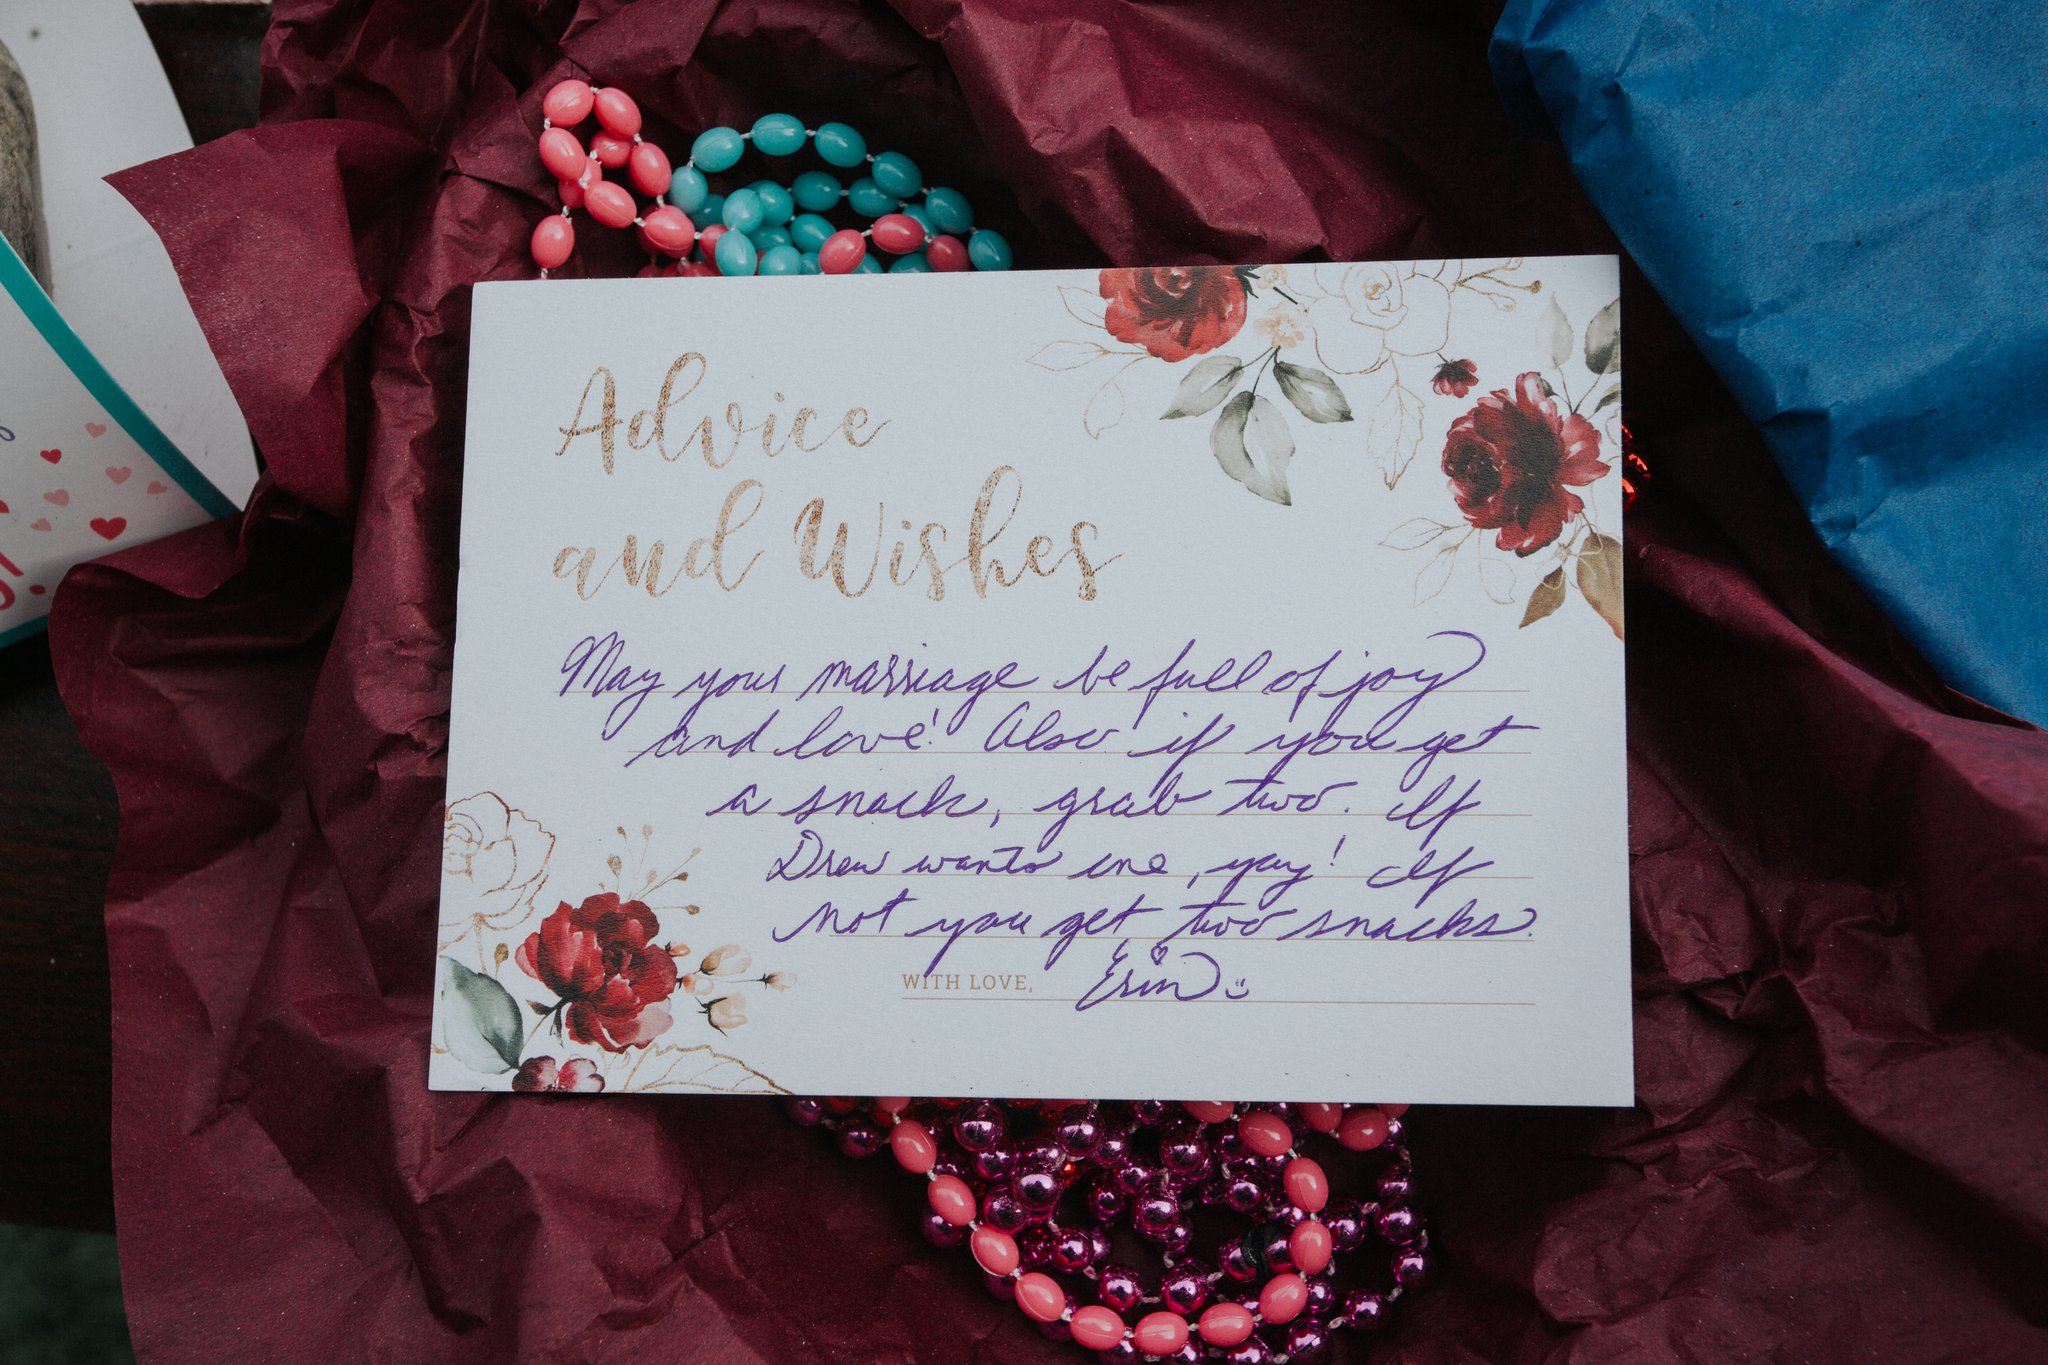 Advice
and Wishes
May your marriage be full of joy
and love! Also if you get
a snack, grab two. If
Drew wants one, yay! If
not you get two snacks.
WITH LOVE, Erin